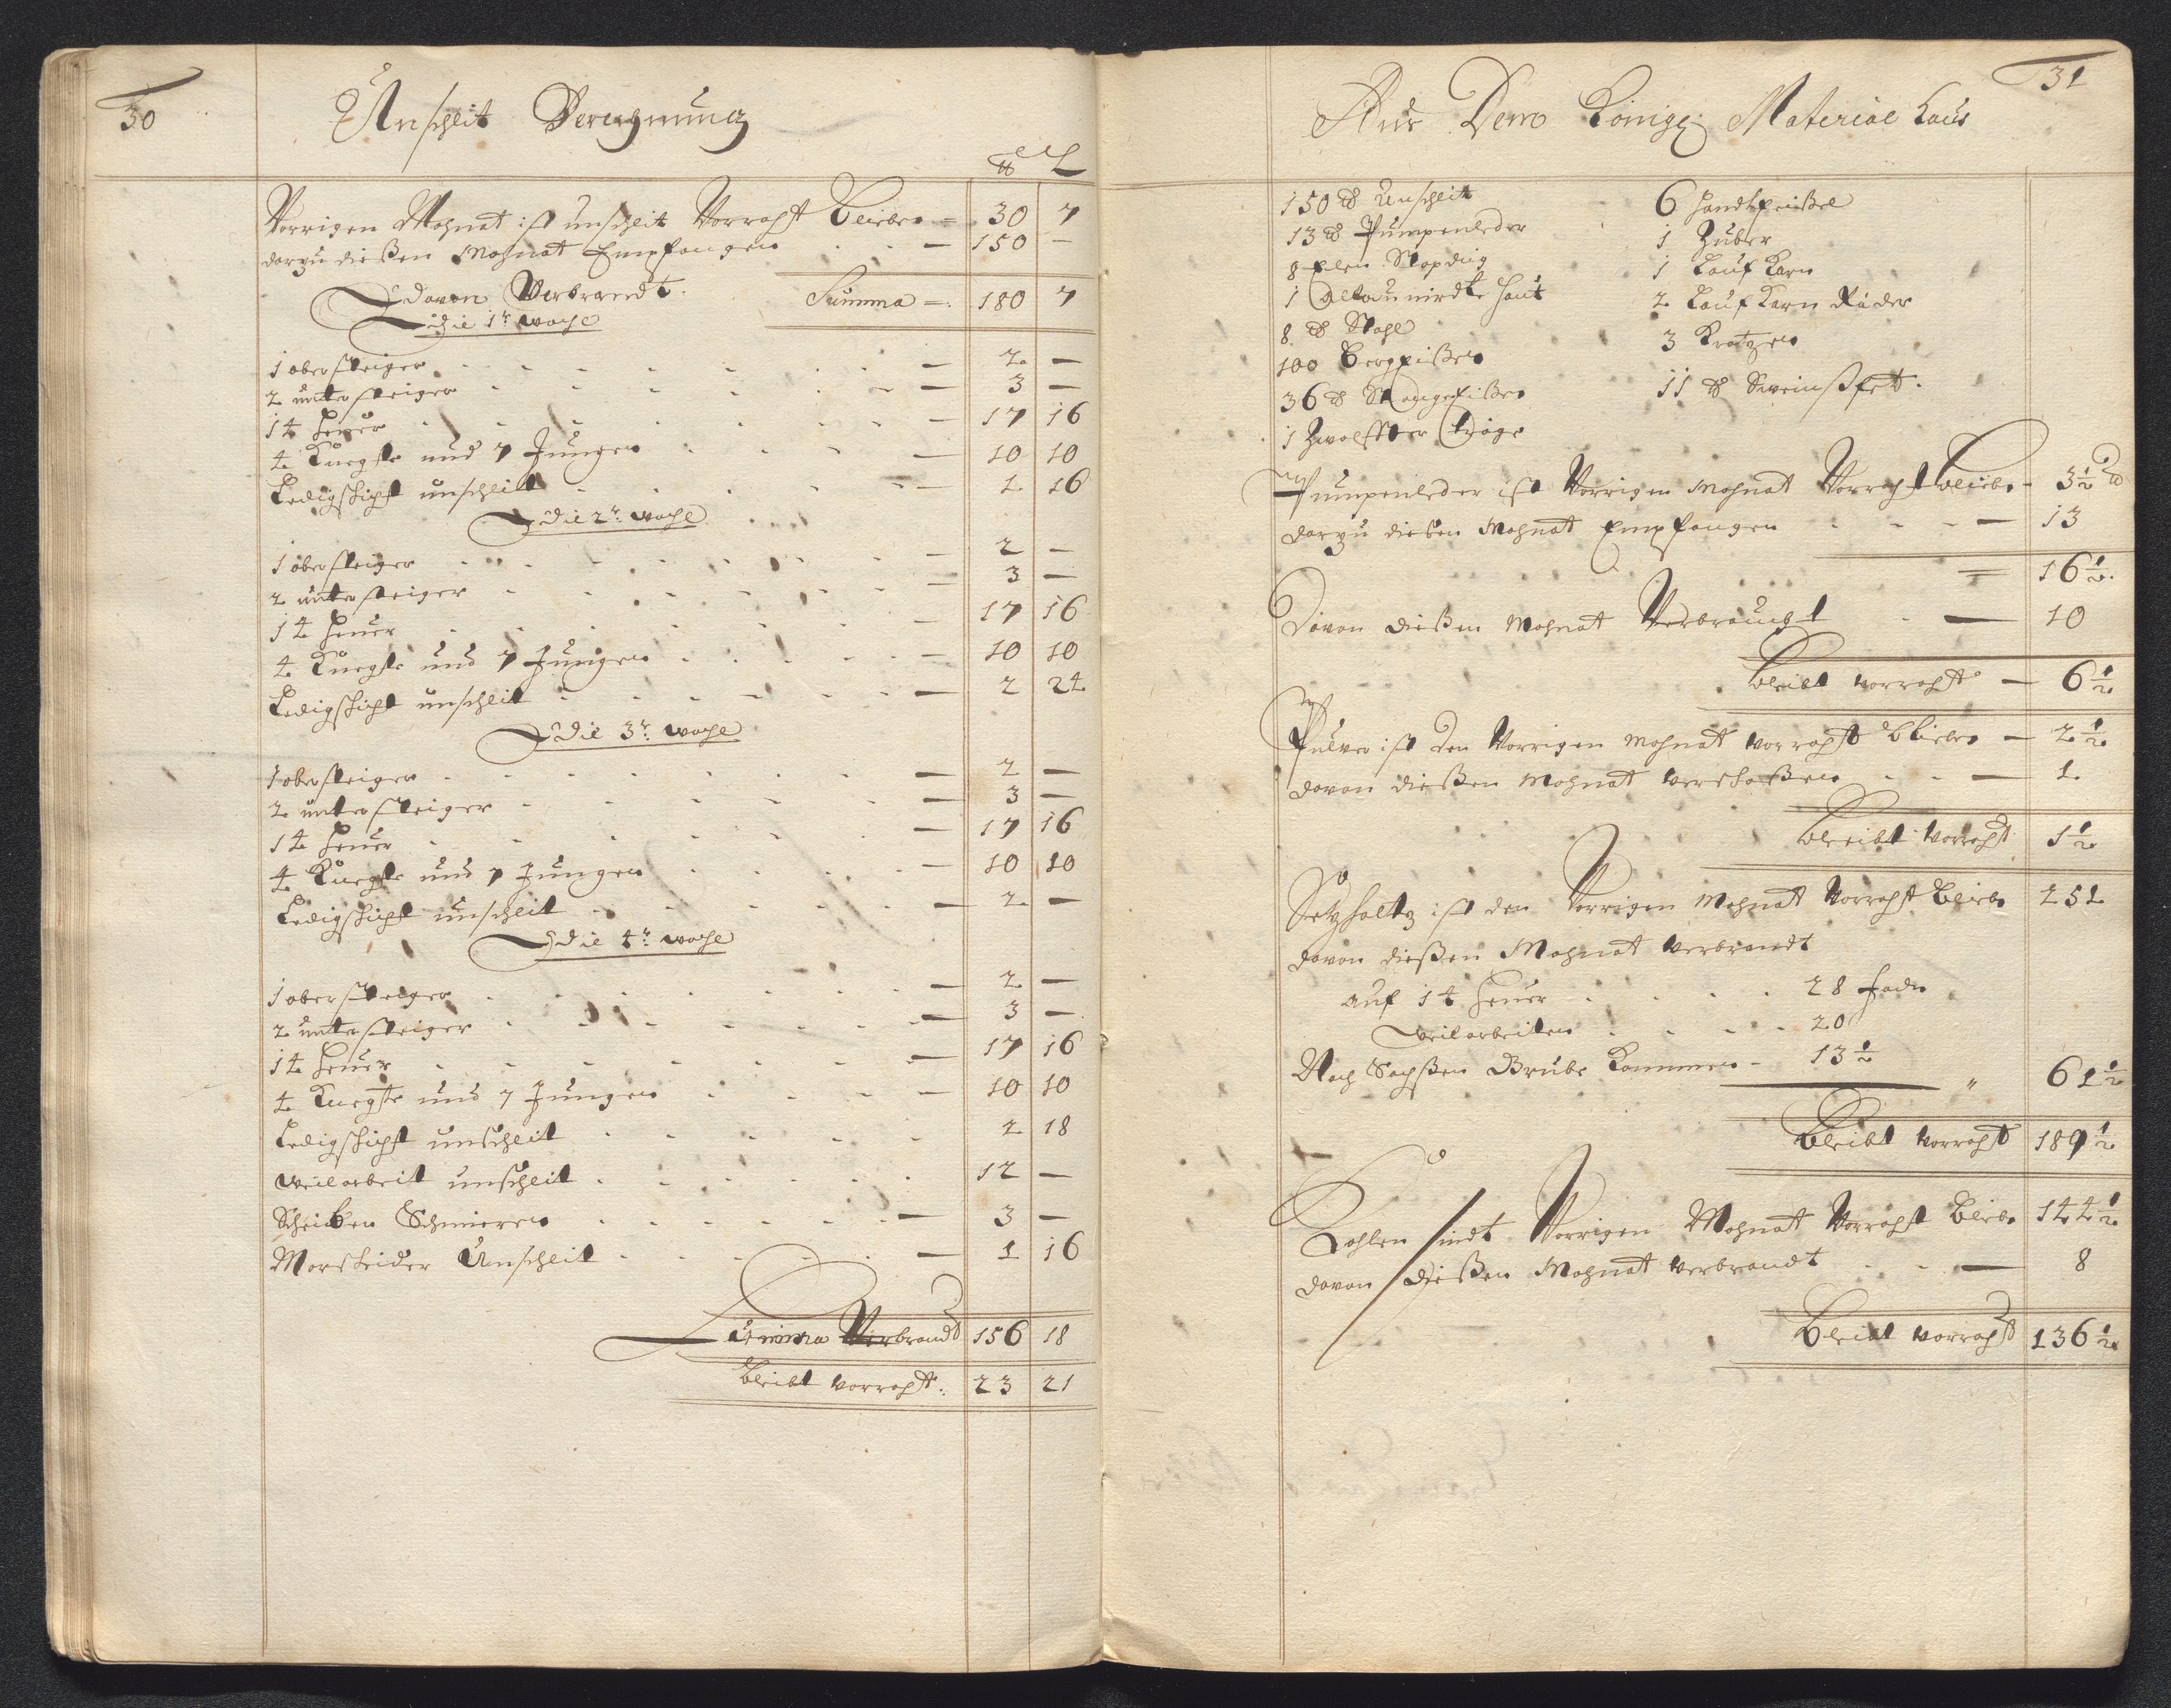 30
Unschlit Berechnung
℔ L
Vorrigen Mohnat ist unschleit Vorraht bleiben = 30 7
darzu dießen Mohnat Empfangen - 150 —
Summa =: 180 7
Davon Verbrandt.
Die 1te woche
1 obersteiger — 2 —
2 untersteiger — 3 —
14 heuer — 17 16
4 Knechte und 7 Jungen — 10 10
Ledigschicht unschleit — 2 16
Die 2te woche
1 obersteiger — 2 —
2 untersteiger — 3 —
14 heuer — 17 16
4 Knechte und 7 Jungen — 10 10
Ledigschicht unschleit — 2 24
Die 3te woche
1 obersteiger — 2 —
2 untersteiger — 3 —
14 heuer — 17 16
4 Knechte und 7 Jungen — 10 10
Ledigschicht unschleit — 2 —
Die 4te woche
1 obersteiger — 2 —
2 untersteiger — 3 —
14 heuer — 17 16
4 Knechte und 7 Jungen — 10 10
Ledigschicht unschleit 2 18
weilarbeit unschleit 12 —
Scheiben Schmieren — 3 —
Morscheider Unschleit — 1 16
Summa Verbrandt 156 18
bleibt vorraht: 23 21
31
Aus Dem Königl: Material haus
150 ℔ Unschleit
13 ℔ Pumpenleder
8 Elen Stopdüg
1 haut
8 ℔ Stahl
100 Bergeißen
36 ℔ Stangeißen
1 Zwolffter Tröge
6 handfeißel
1 Zuber
1 Lauf Karn
2 Lauf Karn Räder
3 Kratzen
11 ℔ Sweinsfet.
Pumpenleder ist Vorrigen Mohnat Vorraht bleiben 3½ ℔
darzu dießen Mohnat Empfangen — 13
= 16½
Davon dießen Mohnat Verbraucht — 10
bleibt vorraht — 6½
Pulver ist den Vorrigen Mohnat vorraht bleiben — 2½
davon dießen Mohnat verschoßen — 1
bleibt Vorraht 1½
Setzholtz ist den Vorrigen Mohnat Vorraht bleiben 251
davon dießen Mohnat verbrandt
auf 14 heuer 28 fadn
weilarbeiten 20
Nach Sachßen Grube Kommen - 13½
" 61½
Bleibt Vorraht 189½
Kohlen sindt Vorrigen Mohnat Vorraht bleiben 144½
davon dießen Mohnat verbrandt — 8
Bleibt vorraht 136½